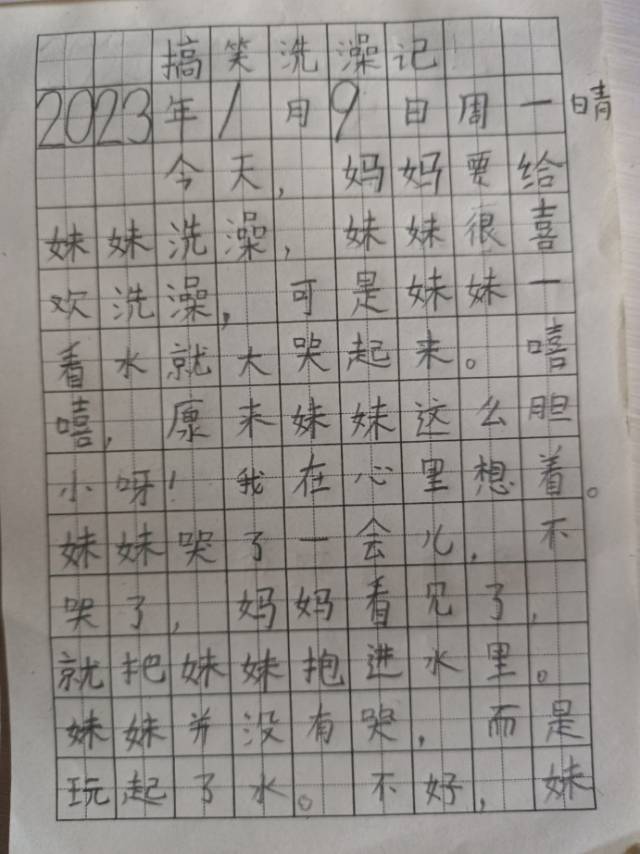 搞笑洗澡记
2023年1月9日周一晴
今天，妈妈要给
妹妹洗澡，妹妹很喜
欢洗澡，可是妹妹一
看水就大哭起来。嘻
嘻，原来妹妹这么胆
小呀！我在心里想着。
妹妹哭了一会儿，不
哭了，妈妈看见了，
就把妹妹抱进水里。
妹妹并没有哭，而是
玩起了水。不好，妹